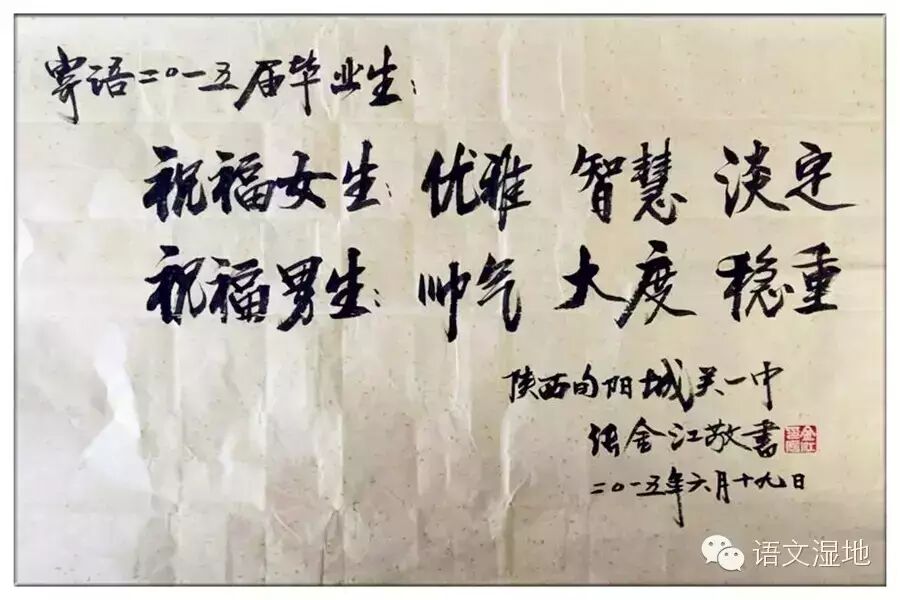 寄语二〇一五届毕业生：
祝福女生：优雅 智慧 淡定
祝福男生：帅气 大度 稳重
陕西旬阳城关一中
张金江敬书
二〇一五年六月十九日
语文湿地